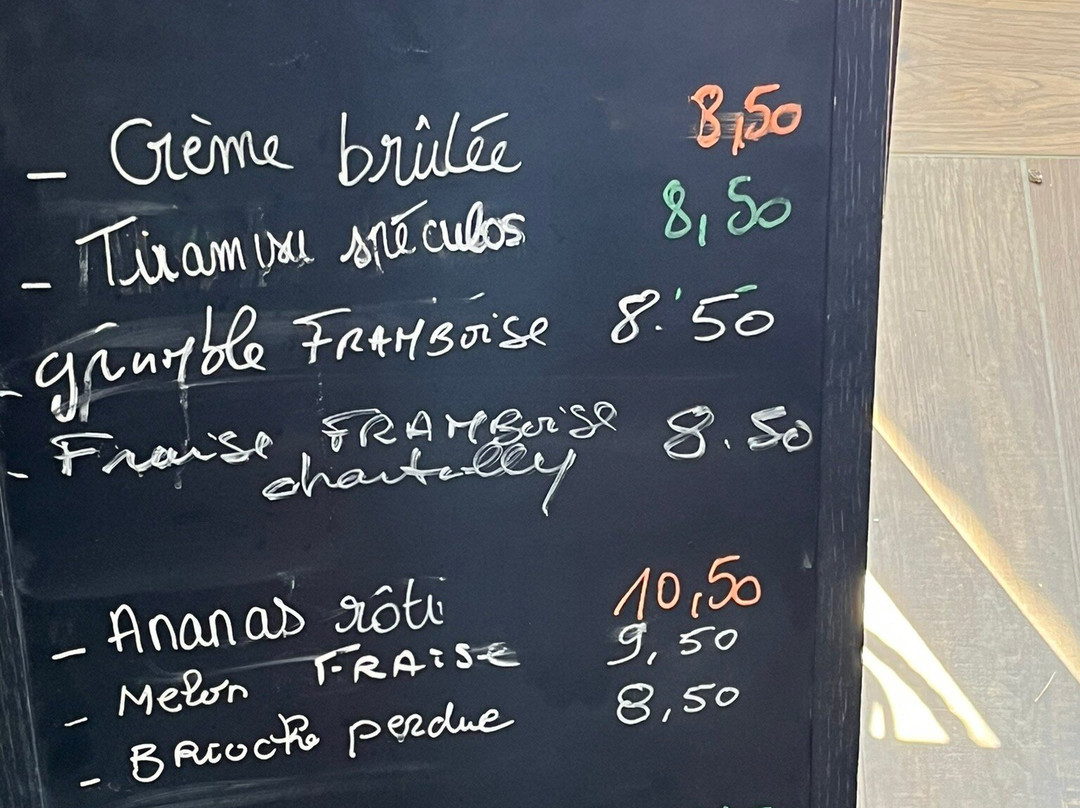 - Crème brûlée 8,50
- Tiramisu spéculos 8,50
- grumble FRAMBOISE 8.50
- Fraise FRAMBOISE 8.50
chantilly
- Ananas rôti 10,50
- Melon FRAISE 9,50
- Brioche perdue 8,50